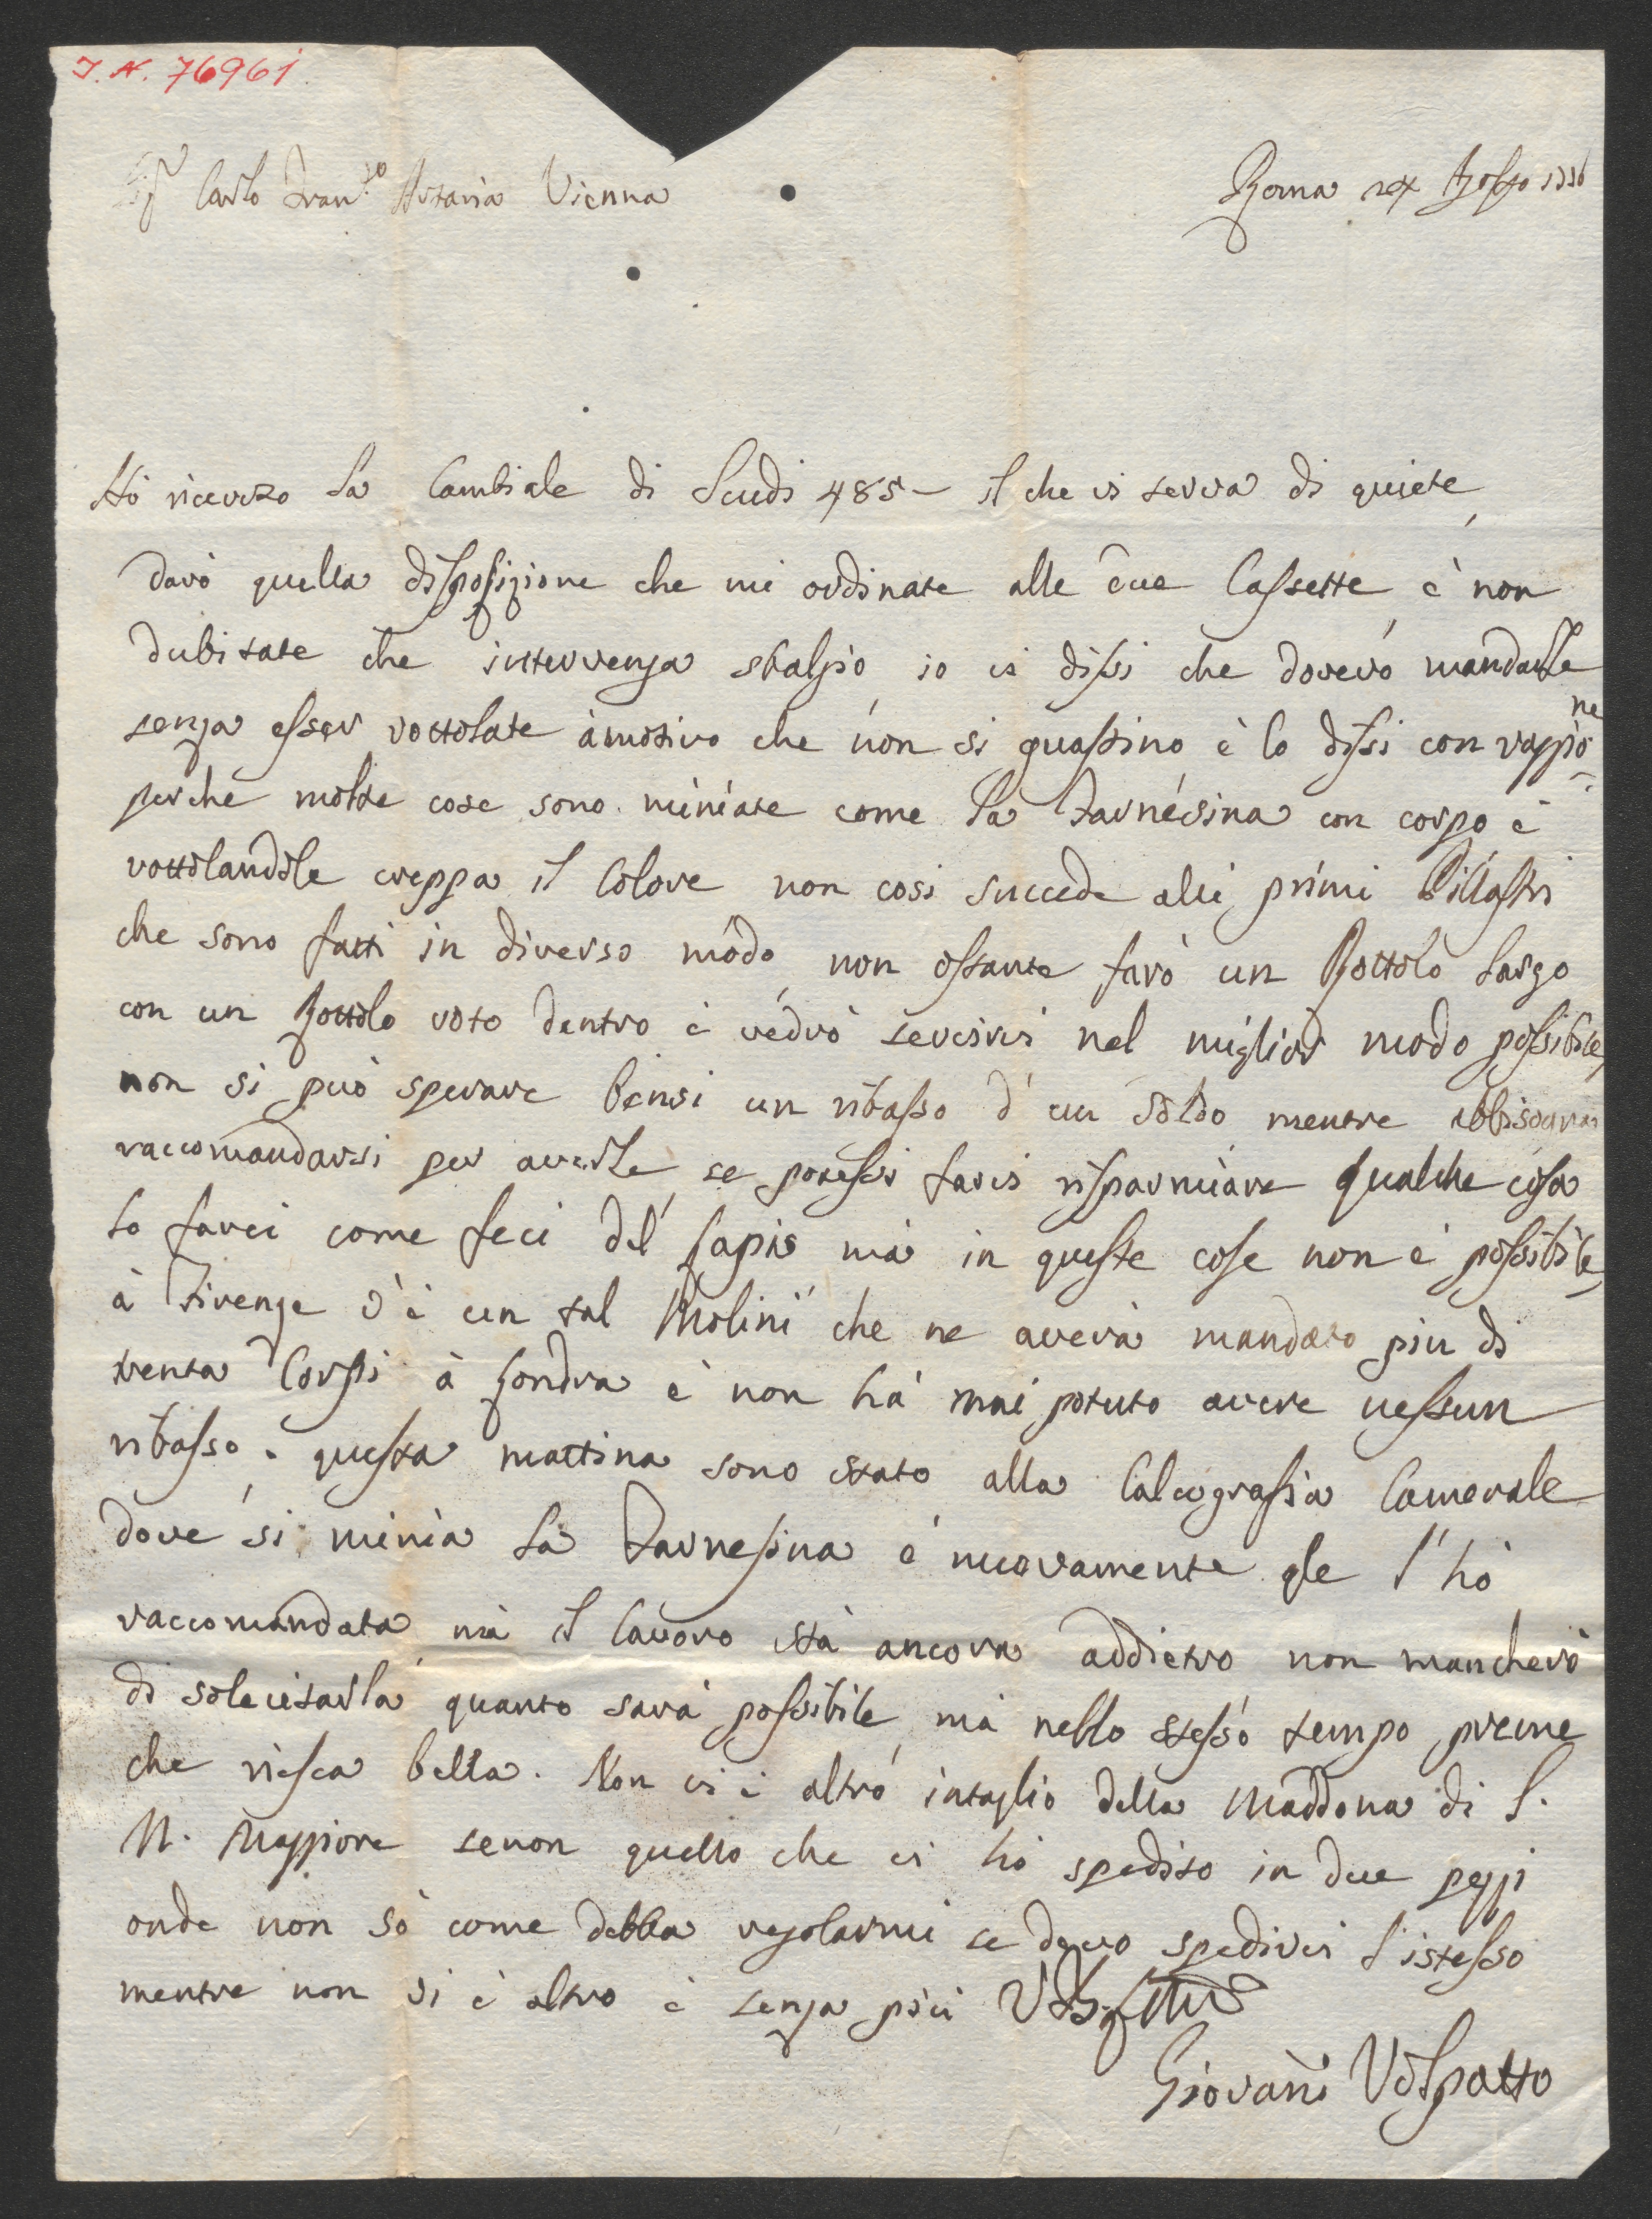 I. N. 76961
Sig.r Carlo Fran.co Artaria Vienna
Roma Agosto
Hò ricevuto la Cambiale di Scudi 485 – il che vi serva di quiete,
darò quella disposizione che mi ordinate alle due Cassette, è non
dubitate che intervenga sbalgio, io vi dissi che dovevo mandarle
senza esser rottolate àmotivo che non si guastino è lo dissi con raggio=ne
perche molte cose sono miniate come la Farnesina con corpo, è
rottolandole creppa il Colore non cosi succede alli primi Pillastri
che sono fatti in diverso modo, non ostante farò un Rottolo largo
con un Rottolo voto dentro è vedrò servirvi nel miglior modo possibile,
non si può sperare bensi un ribasso d'un soldo mentre abbisogna
raccomandarsi per averle, se potessi farvi risparmiare qualche cosa
lo farei come feci del Lapis mà in queste cose non è possibile,
à Firenze v'è un tal Molini che ne averà mandato piu di
trenta Corpi à Londra è non hà mai potuto avere nessun
ribasso. questa mattina sono stato alla Calcografia Camerale
dove si minia la Farnesina è nuovamente gle l'hò
raccomandata mà il lavoro stà ancora addietro non mancherò
di solecitarla quanto sarà possibile, mà nello stesso tempo preme
che riesca bella. Non vi è altro intaglio della Maddona di S.
M. Maggiore senon quello che vi hò spedito in due pezzi
onde non sò come debba regolarmi se devo spedirvi l'istesso
mentre non vi è altro è senza più
Giovani Volpatto